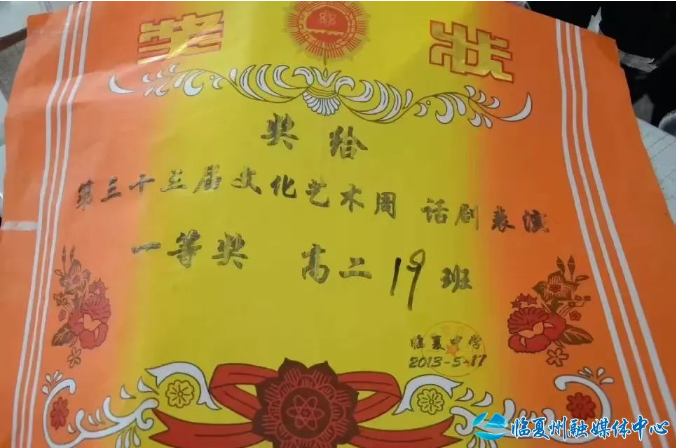 奖状
奖给
第三十五届文化艺术周 话剧表演
一等奖 高二19班
临夏中学
2013-5-17
临夏州融媒体中心